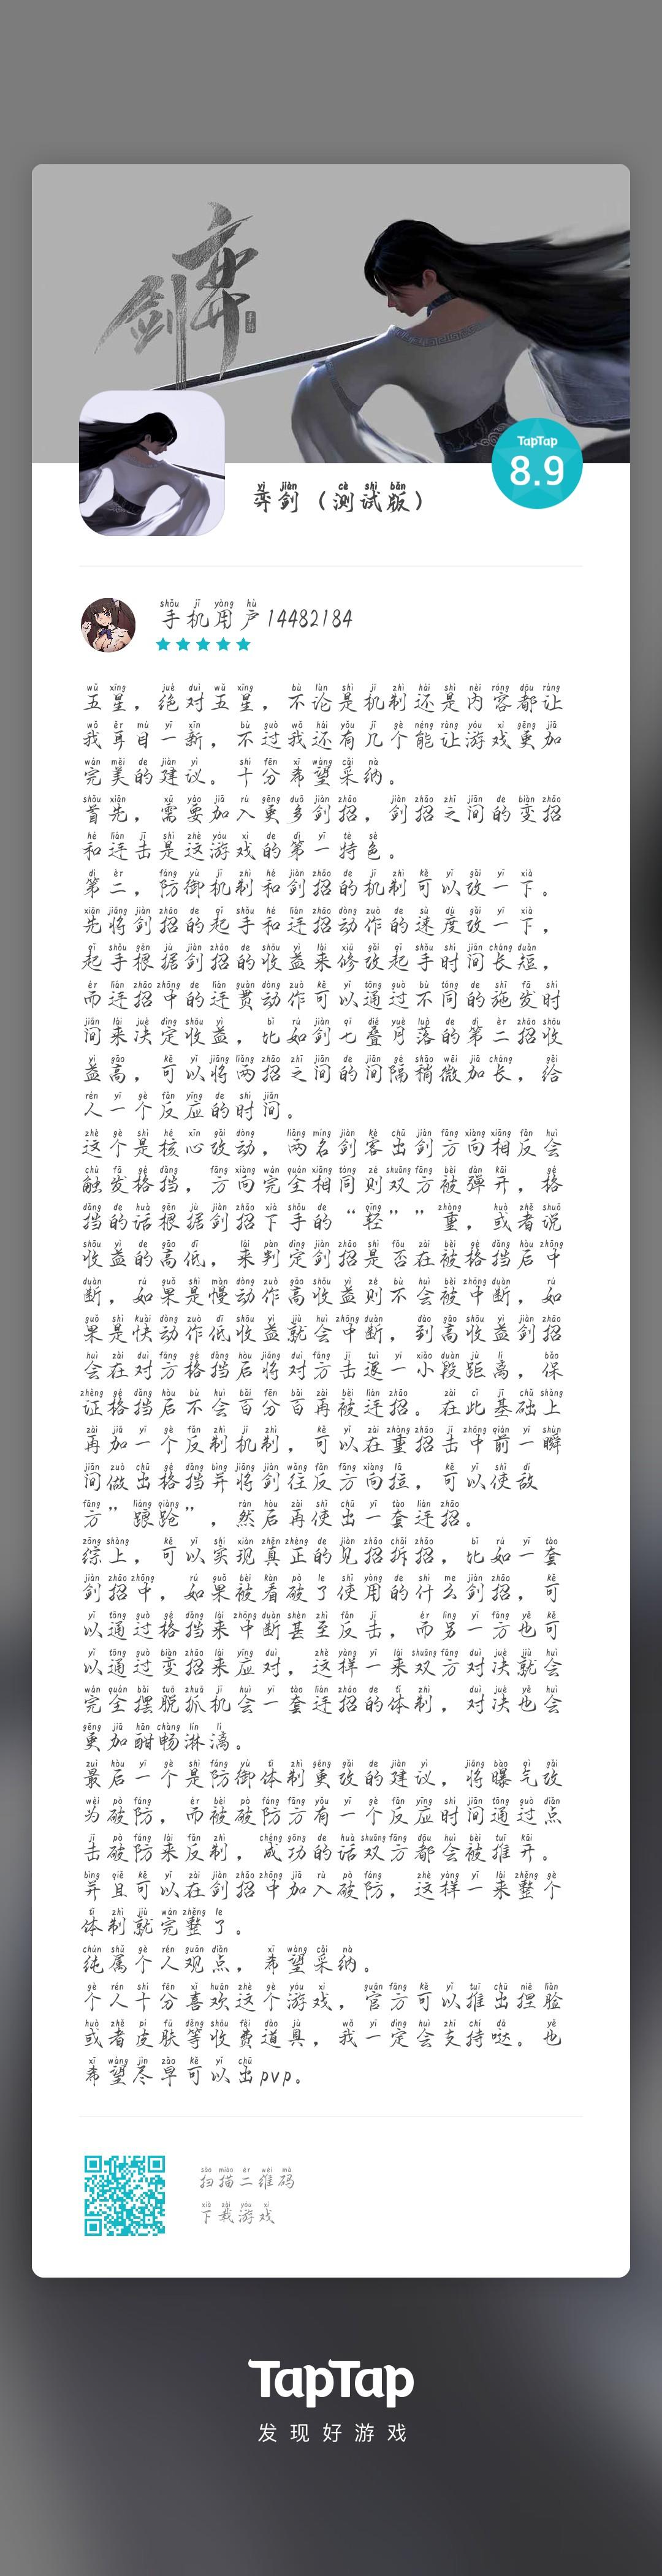 弈剑
手游
TapTap
8.9
弈剑（测试版）
手机用户14482184
五星，绝对五星，不论是机制还是内容都让
我耳目一新，不过我还有几个能让游戏更加
完美的建议。十分希望采纳。
首先，需要加入更多剑招，剑招之间的变招
和连击是这游戏的第一特色。
第二，防御机制和剑招的机制可以改一下。
先将剑招的起手和连招动作的速度改一下，
起手根据剑招的收益来修改起手时间长短，
而连招中的连贯动作可以通过不同的施发时
间来决定收益，比如剑七叠月落的第二招收
益高，可以将两招之间的间隔稍微加长，给
人一个反应的时间。
这个是核心改动，两名剑客出剑方向相反会
触发格挡，方向完全相同则双方被弹开，格
挡的话根据剑招下手的“轻””重，或者说
收益的高低，来判定剑招是否在被格挡后中
断，如果是慢动作高收益则不会被中断，如
果是快动作低收益就会中断，到高收益剑招
会在对方格挡后将对方击退一小段距离，保
证格挡后不会百分百再被连招。在此基础上
再加一个反制机制，可以在重招击中前一瞬
间做出格挡并将剑往反方向拉，可以使敌
方”踉跄”，然后再使出一套连招。
综上，可以实现真正的见招拆招，比如一套
剑招中，如果被看破了使用的什么剑招，可
以通过格挡来中断甚至反击，而另一方也可
以通过变招来应对，这样一来双方对决就会
完全摆脱抓机会一套连招的体制，对决也会
更加酣畅淋漓。
最后一个是防御体制更改的建议，将曝气改
为破防，而被破防方有一个反应时间通过点
击破防来反制，成功的话双方都会被推开。
并且可以在剑招中加入破防，这样一来整个
体制就完整了。
纯属个人观点，希望采纳。
个人十分喜欢这个游戏，官方可以推出捏脸
或者皮肤等收费道具，我一定会支持哒。也
希望尽早可以出pvp。
扫描二维码
下载游戏
TapTap
发现好游戏